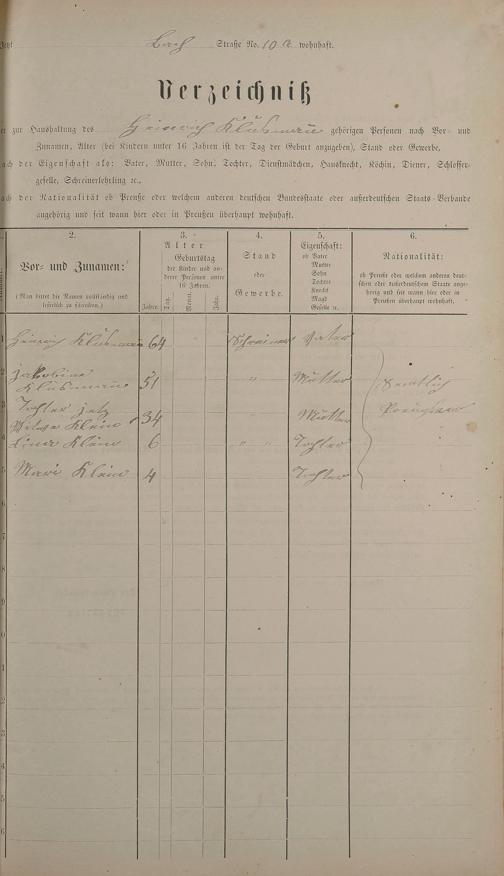 Jetzt Bach Straße No. 10 a wohnhaft.
Verzeichniß
der zur Haushaltung des Heinrich Klüsmann gehörigen Personen nach Vor- und
Zunamen, Alter (bei Kindern unter 16 Jahren ist der Tag der Geburt anzugeben), Stand oder Gewerbe,
nach der Eigenschaft als: Vater, Mutter, Sohn, Tochter, Dienstmädchen, Hausknecht, Köchin, Diener, Schlosser-
geselle, Schreinerlehrling ec.,
nach der Nationalität ob Preuße oder welchem anderen deutschen Bundesstaate oder außerdeutschen Staats-Verbande
angehörig und seit wann hier oder in Preußen überhaupt wohnhaft.
2. 3. 4. 5. 6.
Vor- und Zunamen:
(Man bittet die Namen vollständig und
leserlich zu schreiben.)
Alter
Geburtstag
der Kinder und an-
derer Personen unter
16 Jahren.
Jahre. Tag. Monat. Jahr.
Stand
oder
Gewerbe.
Eigenschaft:
ob Vater
Mutter
Sohn
Tochter
Knecht
Magd
Geselle u.
Nationalität:
ob Preuße oder welchem anderen deut-
schen oder außerdeutschen Staate ange-
hörig und seit wann hier oder in
Preußen überhaupt wohnhaft.
1 Heinrich Klüsmann 64 Schreiner Vater
2 Jakobine
Klüsmann 51 " Mutter
3 Tochter jetz
Witwe Klein 34 Mutter
4 Lina Klein 6 " " Tochter
5 Mari Klein 4 Tochter
Semtlich
Preußen
6
7
8
9
0
1
2
3
4
5
6